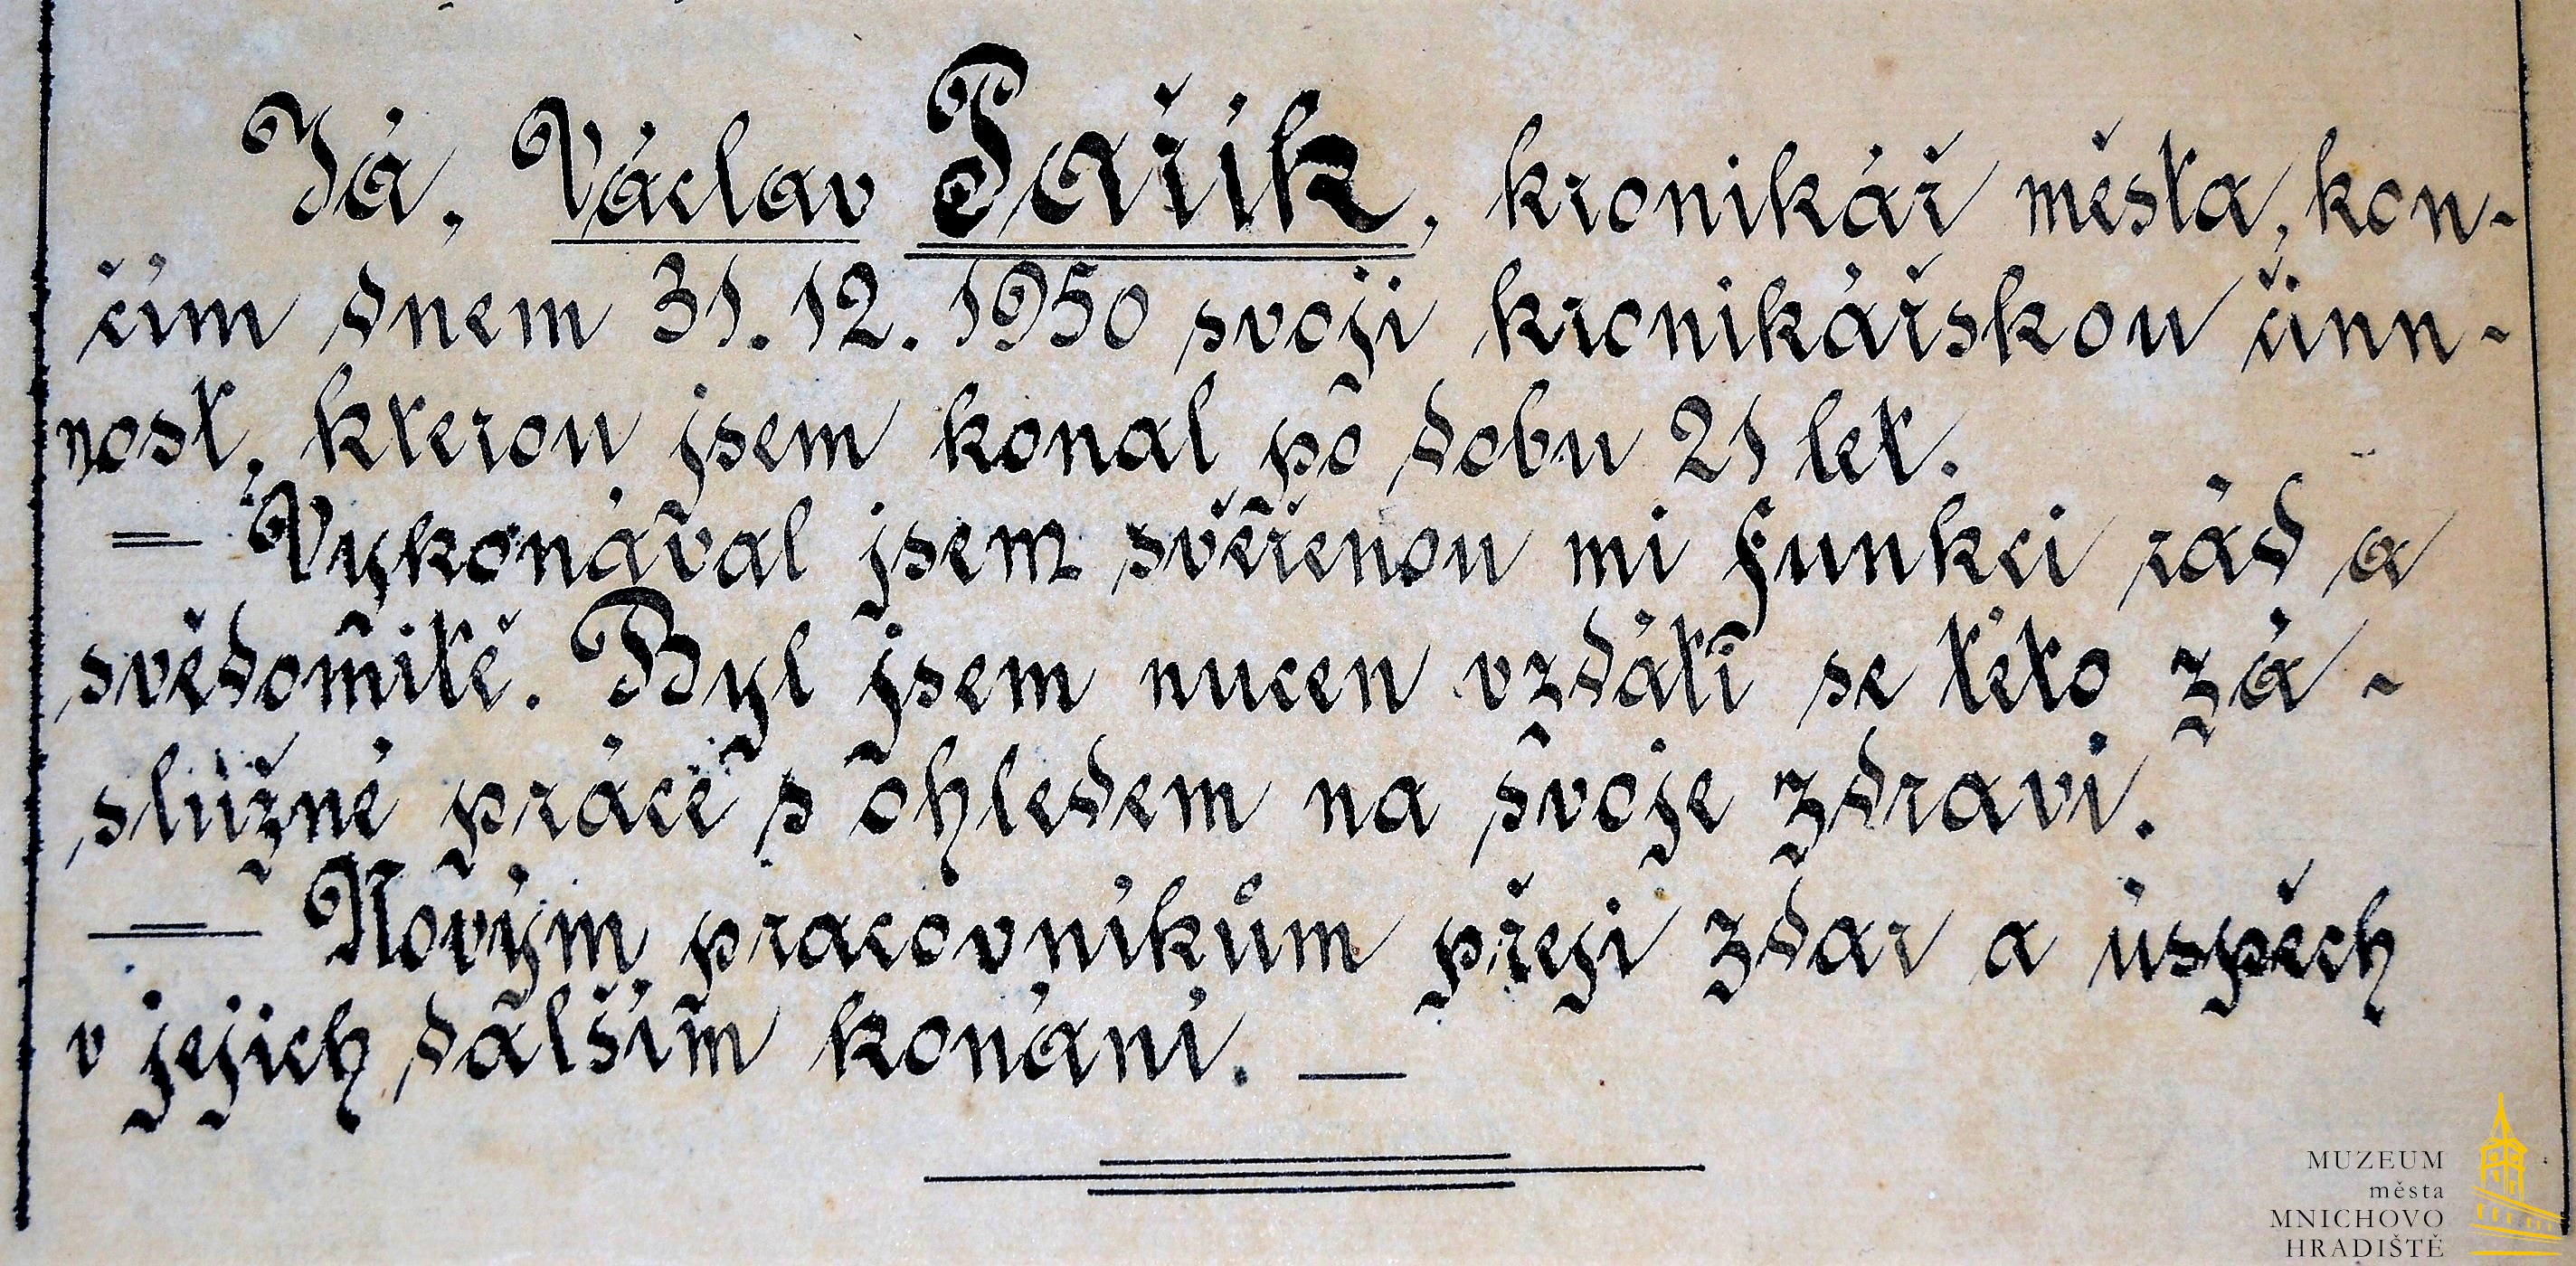 Já, Václav Pařík, kronikář města, kon-
čím dnem 31. 12. 1950 svoji kronikářskou činn-
nost, kterou jsem konal po dobu 21 let.
= Vykonával jsem svěřenou mi funkci rád a
svědomitě. Byl jsem nucen vzdáti se této zá-
služné práce s ohledem na svoje zdraví.
= Novým pracovníkům přeji zdar a úspěch
v jejich dalším konání. —
MUZEUM
města
MNICHOVO
HRADIŠTĚ